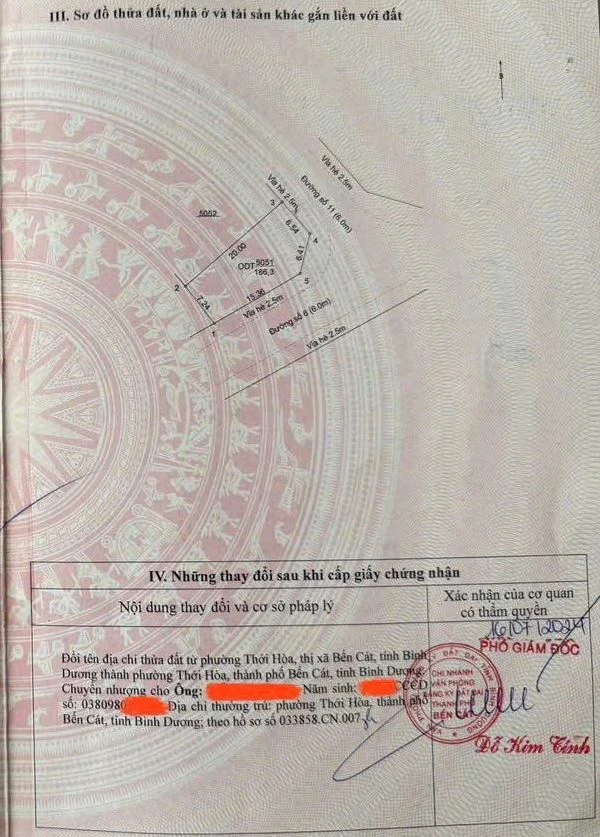 III. Sơ đồ thửa đất, nhà ở và tài sản khác gắn liền với đất
B
Vỉa hè 2.5m
Vỉa hè 2.5m
Đường số 11 (6.0m)
5052
3
6.54
4
20.00
ODT 5051
186,3
6.41
5
2
7.24
15.36
1
Vỉa hè 2.5m
Đường số 6 (6.0m)
Vỉa hè 2.5m
IV. Những thay đổi sau khi cấp giấy chứng nhận
Nội dung thay đổi và cơ sở pháp lý
Xác nhận của cơ quan
có thẩm quyền
16/07/2024
PHÓ GIÁM ĐỐC
Đổi tên địa chỉ thửa đất từ phường Thới Hòa, thị xã Bến Cát, tỉnh Bình
Dương thành phường Thới Hòa, thành phố Bến Cát, tỉnh Bình Dương.
Chuyển nhượng cho Ông: Năm sinh: CCCD
số: 038098 Địa chỉ thường trú: phường Thới Hòa, thành phố
Bến Cát, tỉnh Bình Dương; theo hồ sơ số 033858.CN.007
CHI NHÁNH
VĂN PHÒNG
ĐĂNG KÝ ĐẤT ĐAI
THÀNH PHỐ
BẾN CÁT
Đỗ Kim Tính